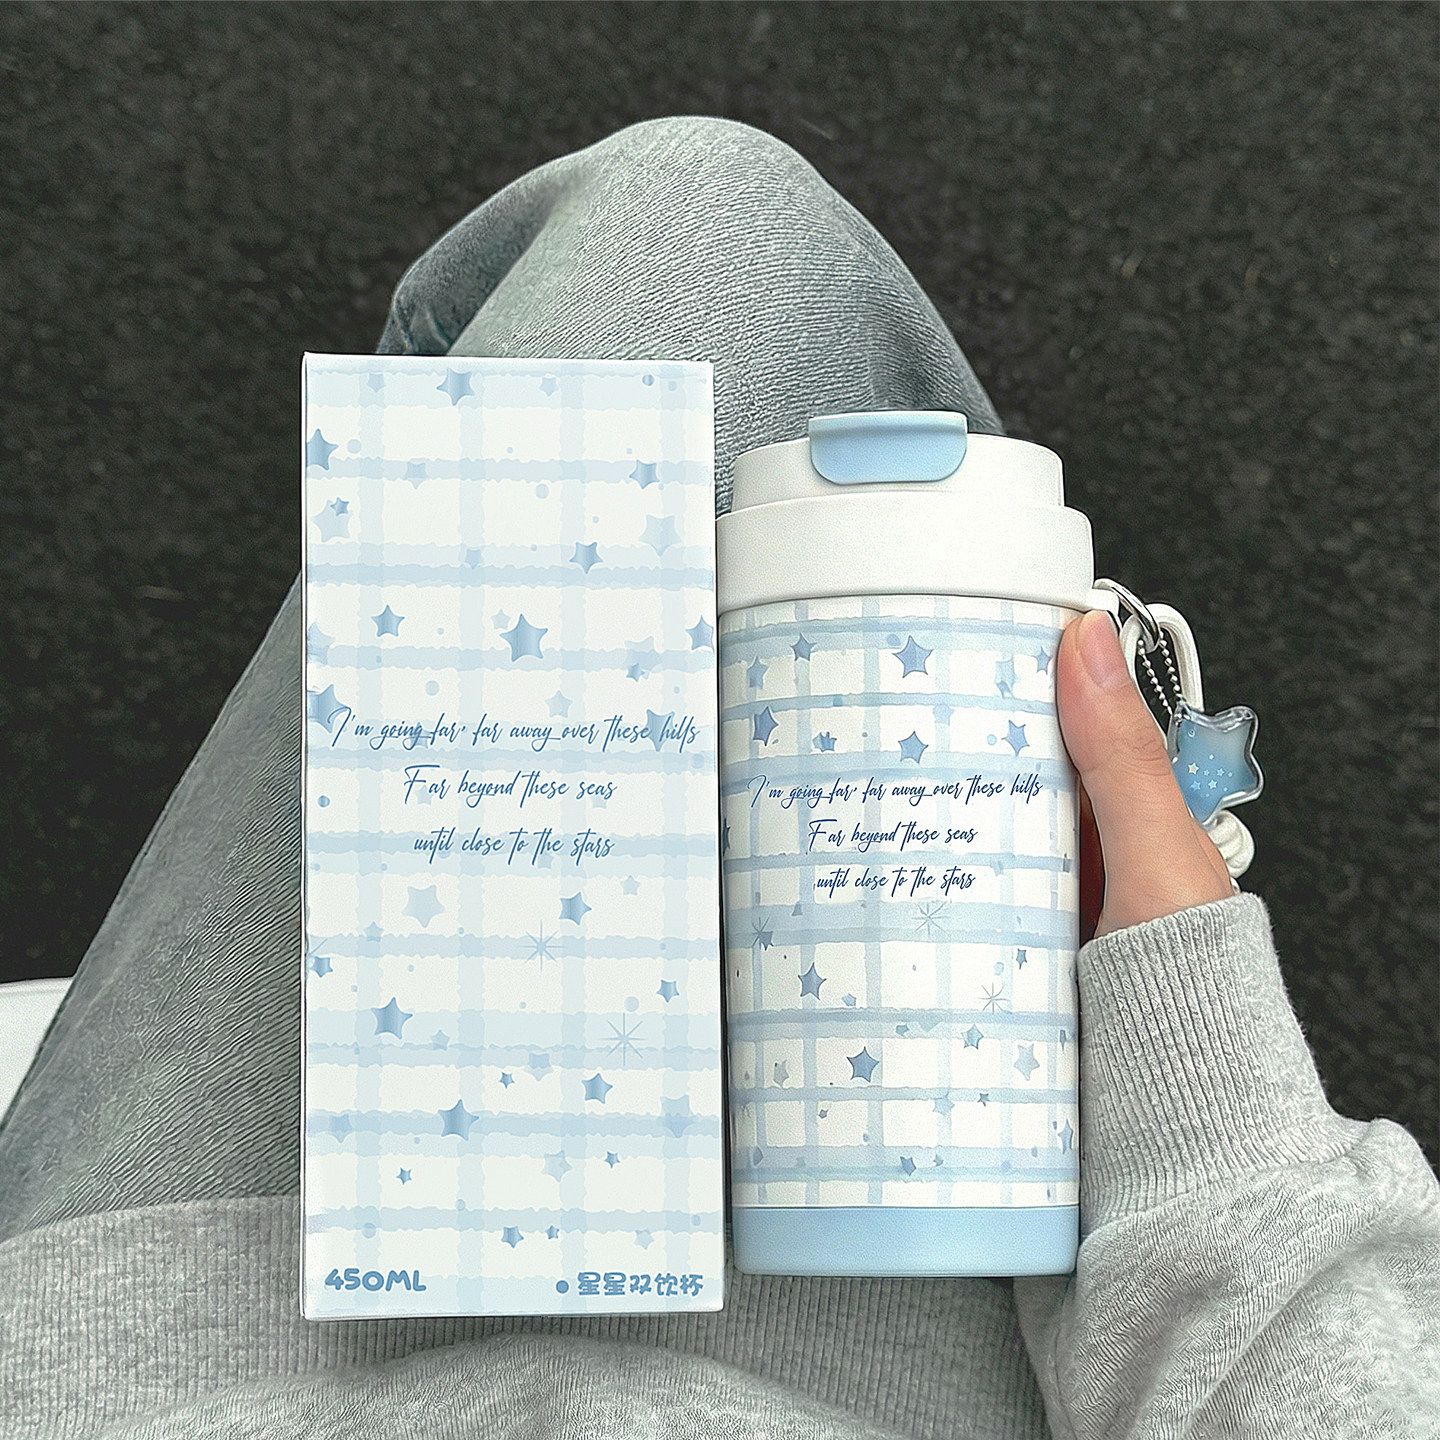 I'm going far, far away over these hills
Far beyond these seas
until close to the stars
450ML
星星双饮杯
I'm going far, far away over these hills
Far beyond these seas
until close to the stars